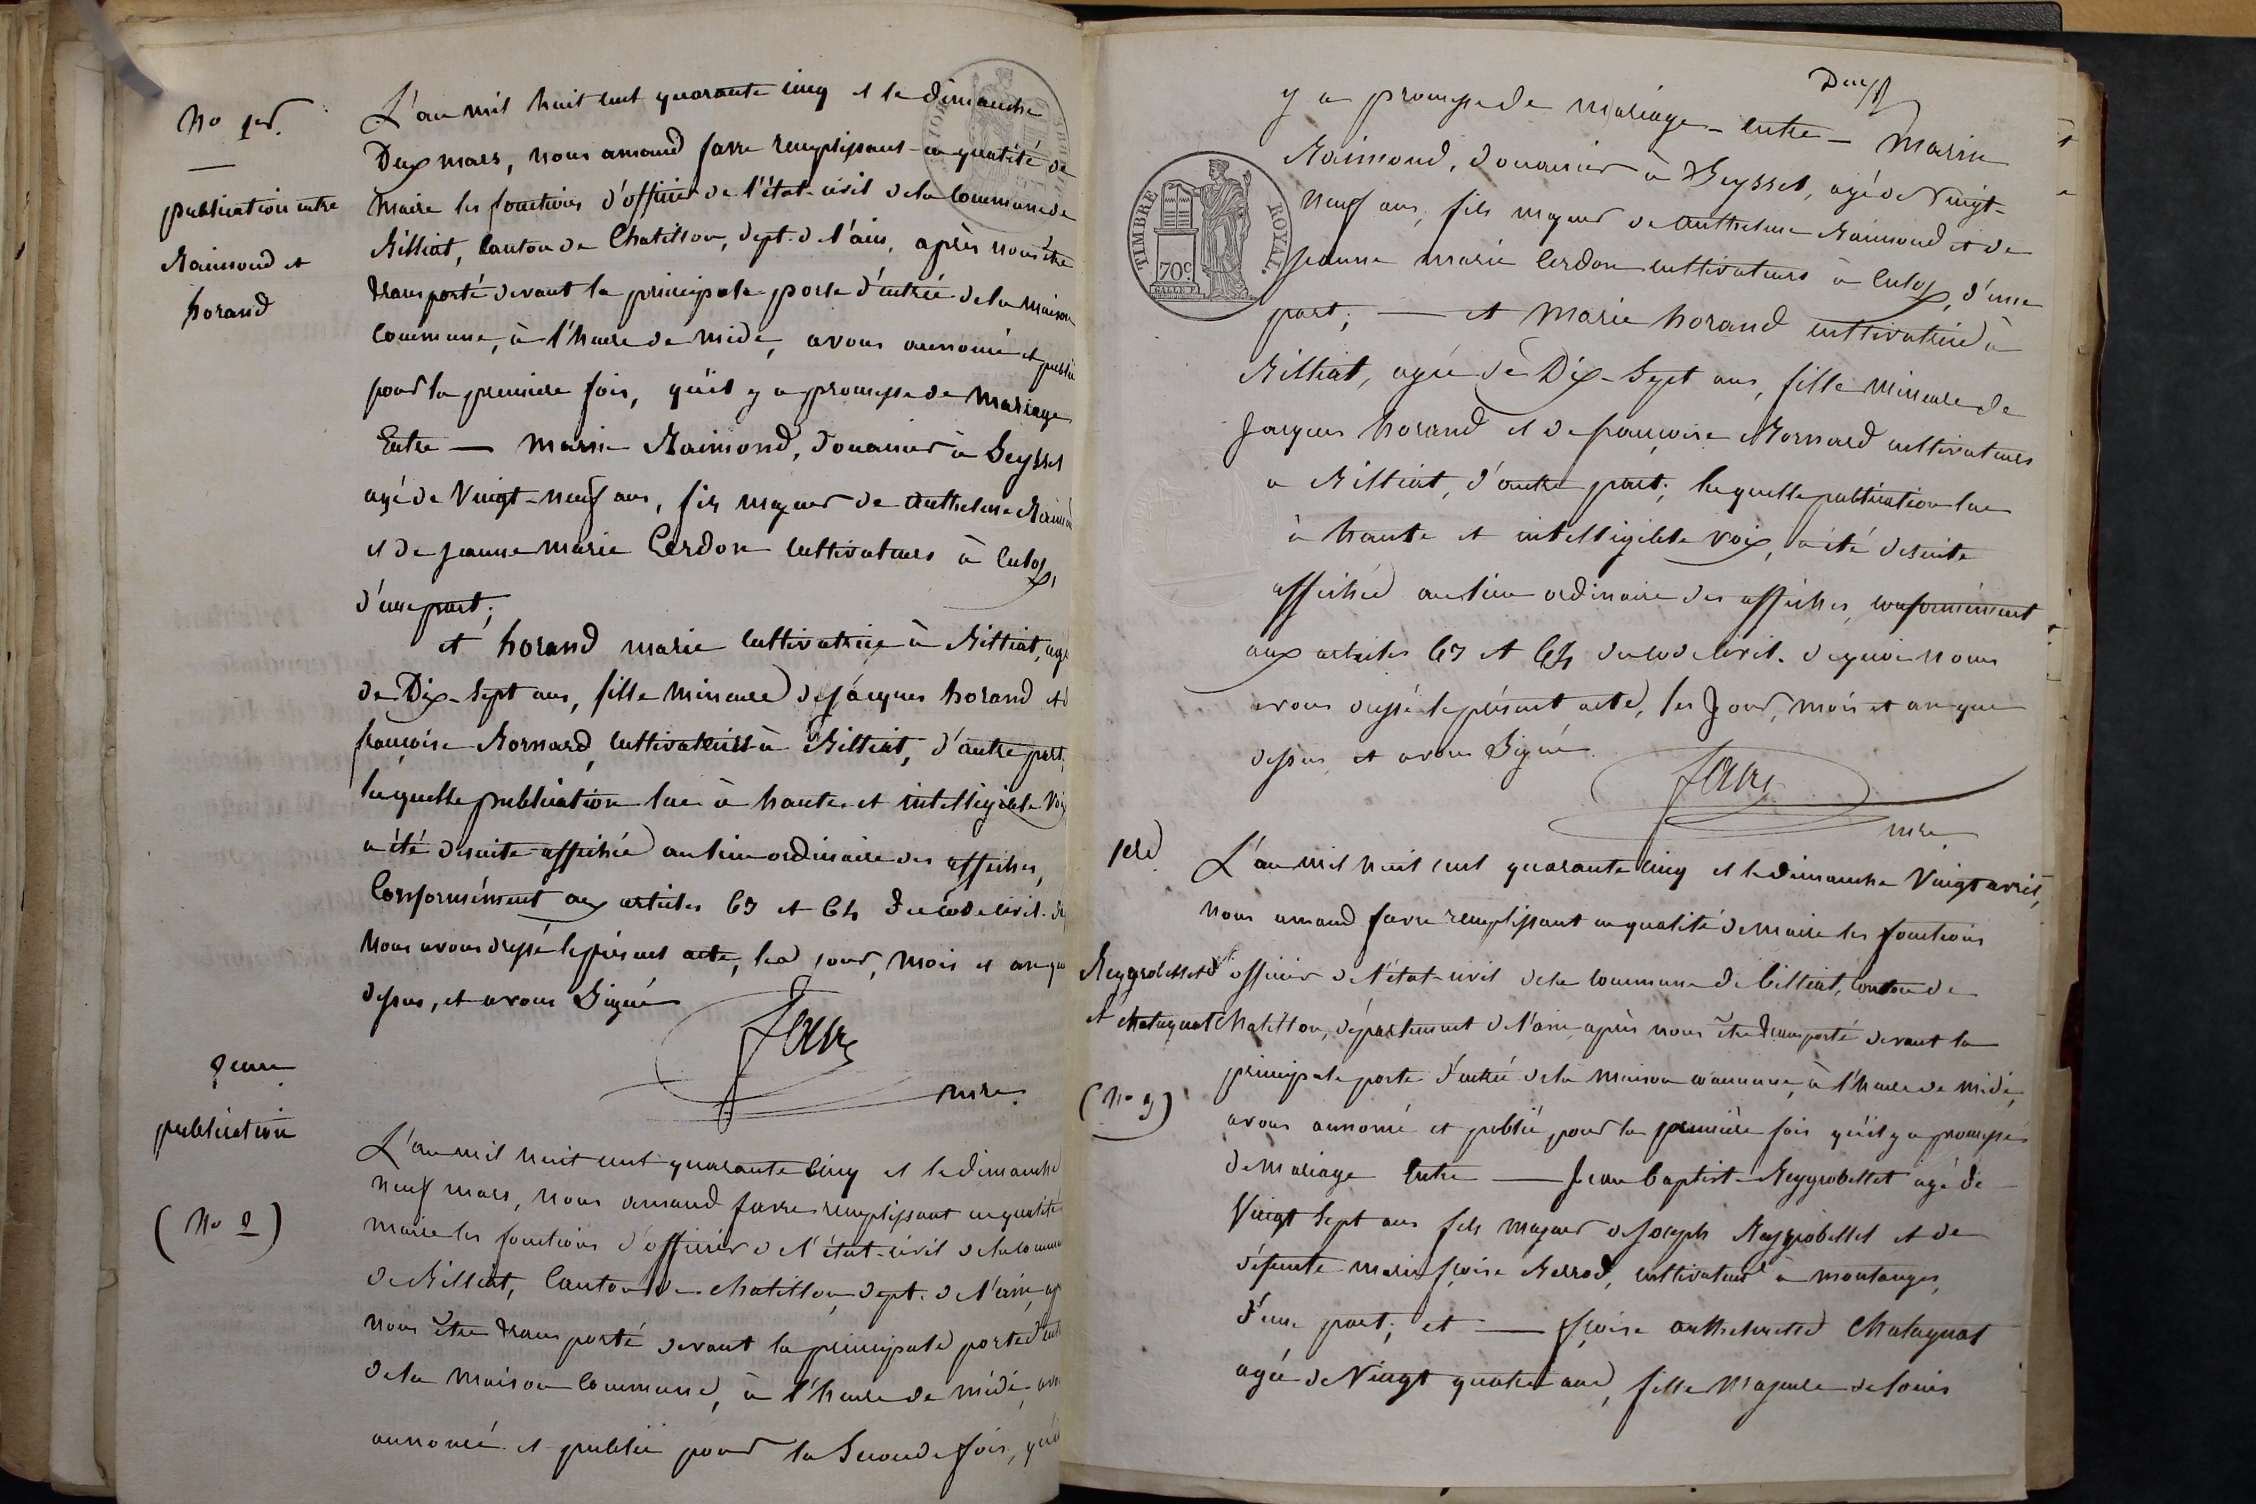 No 1er.
publication entre
Raimond et
horand
L'an mil huit cent quarante cinq et le dimanche
Deux mars, nous amand favre remplissant en qualité de
maire les fonctions d'officier de l'état-civil de la Commune de
Billiat, Canton de Chatillon, dept. de l'ain, après nous être
transporté devant la principale porte d'entrée de la maison
Commune, à l'heure de midi, avons annoncé et publié
pour la premiere fois, qu'il y a promesse de mariage
Entre — Marin Raimond, Douanier à Seyssel
agé de Vingt-neuf ans, fils majeur de Anthelme Raimond
et de jeanne marie Cerdon Cultivateurs à Culoz,
d'une part;
et horand marie Cultivatrice à Billiat, agé
de Dix-Sept ans, fille mineure de jacques horand et d
françoise Bornard, Cultivateurs à Billiat, d'autre part,
laquelle publication lue à haute et intelligible Voix
a été desuite affichée au lieu ordinaire des affiches,
Conformément aux articles 63 et 64 du code civil. de
Nous avons dressé le présent acte, les jour, mois et an que
dessus, et avons Signé
favre
mre.
2eme
publication
(No 2)
L'an mil huit cent quarante Cinq et le dimanche
neuf mars, nous amand favre remplissant en qualité
maire les fonctions d'officier de l'état-civil de la commune
de Billiat, Canton de chatillon dept. de l'ain, ap
nous être transporté devant la principale porte d'ent
de la maison Commune, à l'heure de midi, avo
annoncé et publié pour la Seconde fois, qu'il
Deux
y a promesse de mariage - entre - Marin
Raimond, Douanier à Seyssel, agé de Vingt-
neuf ans, fils majeur de Anthelme Raimond et de
jeanne marie Cerdon cultivateurs à Culoz, d'une
part; — et Marie horand cultivatrice à
Billiat, agée de Dix-Sept ans, fille mineure de
jacques horand et de françoise Bornard cultivateurs
a Billiat, d'autre part; laquelle publication lue
à haute et intelligible voix, a été desuite
affichée au lieu ordinaire des affiches, conformément
aux articles 63 et 64 du code civil. de quoi nous
avons dressé le présent acte, les Jour, mois et an que
dessus, et avons Signé.
favre
mre
TIMBRE ROYAL.
70c
1ere
Reygrobellet
et Chatagnat
(No 3)
L'an mil huit cent quarante cinq et le dimanche Vingt avril,
nous amand favre remplissant en qualité de maire les fonctions
d'officier de l'état-civil de la commune de billiat, Canton de
Chatillon, département de l'ain après nous être transporté devant la
principale porte d'entrée de la maison commune, à l'heure de midi,
avons annoncé et publié pour la premiere fois qu'il y a promesse
de mariage Entre — Jean baptist Reygrobellet agé de
Vingt Sept ans fils majeur de Joseph Reygrobellet et de
défunte marie fçoise Berrod, cultivateur à montanges,
d'une part; et — fçoise anthelmette Chatagnat
agée de Vingt quatre ans, fille Majeure de Louis